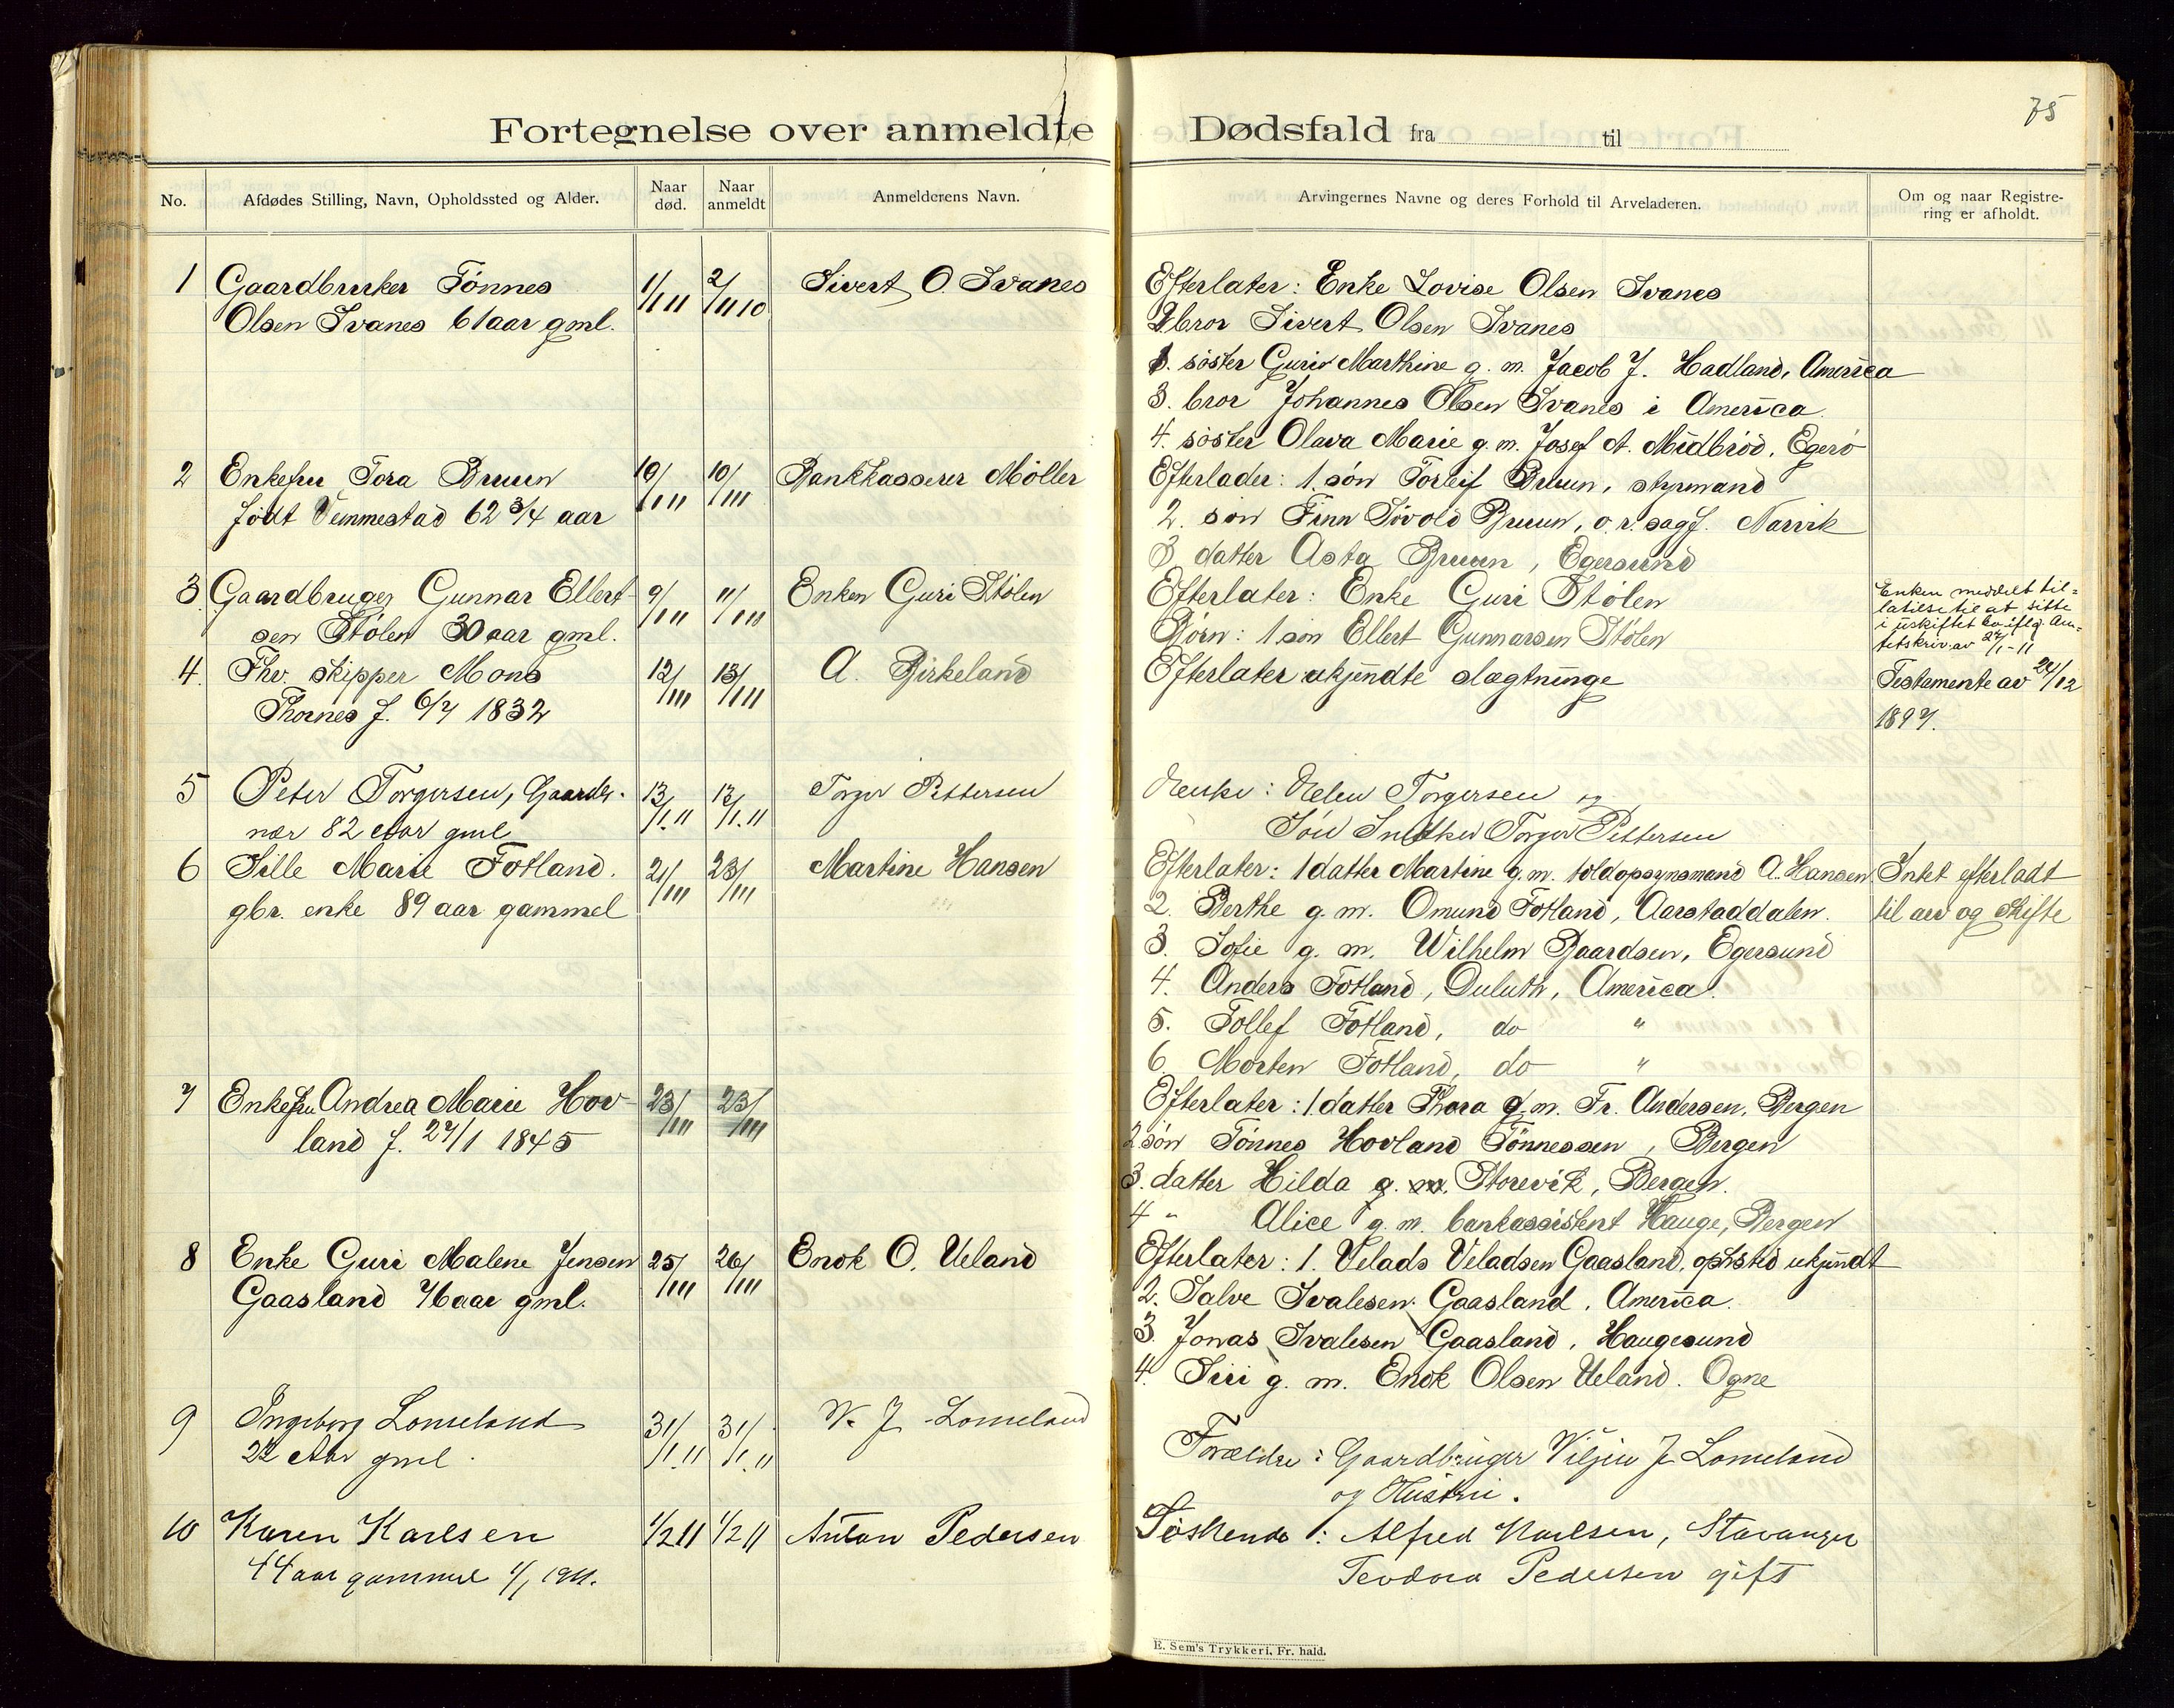 75
Fortegnelse over anmeldte Dødsfald fra til
No. Afdødes Stilling, Navn, Opholdssted og Alder. Naar død. Naar anmeldt Anmelderens Navn. Arvingernes Navne og deres Forhold til Arveladeren. Om og naar Registrering er afholdt.
1 Gaardbruker Tønnes 1/1 11 2/1 1110 Sivert O Svanes Efterlater: Enke Lovise Olsen Svanes
Olsen Svanes 61 aar gml. 2 bror Sivert Olsen Svanes
søster Marthine g. m. Jacob J. Hadland, America
3. bror Johannes Olsen Svanes i America.
4. søster Olava Marie g. m. Josef A. Midbrød, Egerø
2 Enkefru Tora Bruun 10/1 11 10/1 11 Bankkasserer Møller Efterlader: 1. søn Torleif Bruun, styrmand
født Vemmestad 62 3/4 aar 2. søn Finn Bruun, o. r. sagf. Narvik
3 datter Asta Bruun, Egersund
3. Gaardbruger Gunnar Ellert- 9/1 11 11/1 11 Enken Guri Stølen Efterlater: Enke Guri Stølen Enken meddelt til=
sen Stølen 30 aar gml. Børn: 1 søn Ellert Gunnarsen Stølen latilse til at sitte
i uskiftet bo iflg. Am-
tetskriv. av 24/1-11
4. Fhv. skipper Mons 12/1 11 13/1 11 A. Birkeland Efterlater ukjendte slægtninge Testamente av 24/12
Thornes f. 6/7 1832 1897.
5 Peter Torgersen, Gaards- 13/1.11 13/1.11 Torger Pettersen Enke: Helen Torgersen og
nær 82 Aar gml Søn Snedker Torger Pettersen
6 Sille Marie Fotland. 21/1 11 23/1 11 Martine Hansen Efterlater: 1 datter Martine g. m. toldopsynsmand A. Hansen. Intet efterladt
gbr. enke 89 aar gammel 2. Berthe g. m. Omund Fotland, Aarstaddalen. til arv og skifte
3. Sofie g. m. Wilhelm Baardsen, Egersund
4. Anders Fotland, Duluth, America.
5. Tollef Fotland, do "
6. Morten Fotland, do "
7 Enkefru Andrea Marie Hov- 23/1 11 23/1 11 Efterlater: 1 datter Thora g. m. Fr. Andersen, Bergen
land f. 27/1 1845 2. søn Tønnes Hovland Tønnessen, Bergen
3. datter Hilda g. m. Storevik, Bergen.
4 " Alice g. m. bankassistent Hauge, Bergen
8 Enke Guri Malene Jensen 25/1 11 26/1 11 Enok O. Ueland Efterlater: 1. Velads Veladsen Gaasland, opholdsted ukjendt
Gaasland 76 aar gml. 2. Salve Svalesen Gaasland, America.
3. Jonas Svalesen Gaasland, Haugesund
4. Siri g. m. Enok Olsen Ueland. Ogne
9 Ingeborg Lomeland 31/1.11 31/1.11 V. J. Lomeland Forældre: Gaardbruger Viljen J. Lomeland
22 Aar gml. og Hustru.
10 Karen Karlsen 1/2 11 1/2 11 Anton Pedersen Søskende: Alfred Karlsen, Stavanger
44 aar gammel 1/1 1911. Teodora Pedersen gift
E. Sem's Trykkeri, Fr. hald.